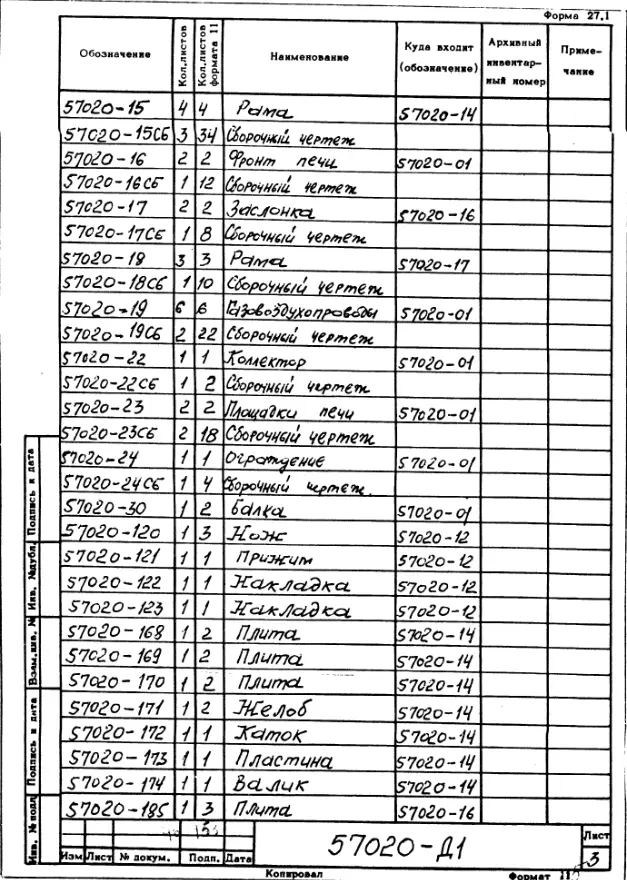 Форма 27.1
Обозначение Кол.листов Кол.листов формата 11 Наименование Куда входит (обозначение) Архивный инвентарный номер Примечание
57020-15 4 4 Рама 57020-14
57020-15СБ 3 34 Сборочный чертеж
57020-16 2 2 Фронт печи 57020-01
57020-16СБ 1 12 Сборочный чертеж
57020-17 2 2 Заслонка 57020-16
57020-17СБ 1 8 Сборочный чертеж
57020-18 3 3 Рама 57020-17
57020-18СБ 1 10 Сборочный чертеж
57020-19 6 6 Газовоздухопроводы 57020-01
57020-19СБ 2 22 Сборочный чертеж
57020-22 1 1 Коллектор 57020-01
57020-22СБ 1 2 Сборочный чертеж
57020-23 2 2 Площадки печи 57020-01
57020-23СБ 2 18 Сборочный чертеж
57020-24 1 1 Ограждение 57020-01
57020-24СБ 1 4 Сборочный чертеж
57020-30 1 2 Балка 57020-01
57020-120 1 3 Нож 57020-12
57020-121 1 1 Прижим 57020-12
57020-122 1 1 Накладка 57020-12
57020-123 1 1 Накладка 57020-12
57020-168 1 2 Плита 57020-14
57020-169 1 2 Плита 57020-14
57020-170 1 2 Плита 57020-14
57020-171 1 2 Желоб 57020-14
57020-172 1 1 Каток 57020-14
57020-173 1 1 Пластина 57020-14
57020-174 1 1 Валик 57020-14
57020-185 1 3 Плита 57020-16
Подпись и дата
Инв. №дубл.
Взам.инв. №
Подпись и дата
Инв. № подл.
Изм Лист № докум. Подп. Дата
57020-Д1
Лист
3
Копировал
Формат 11